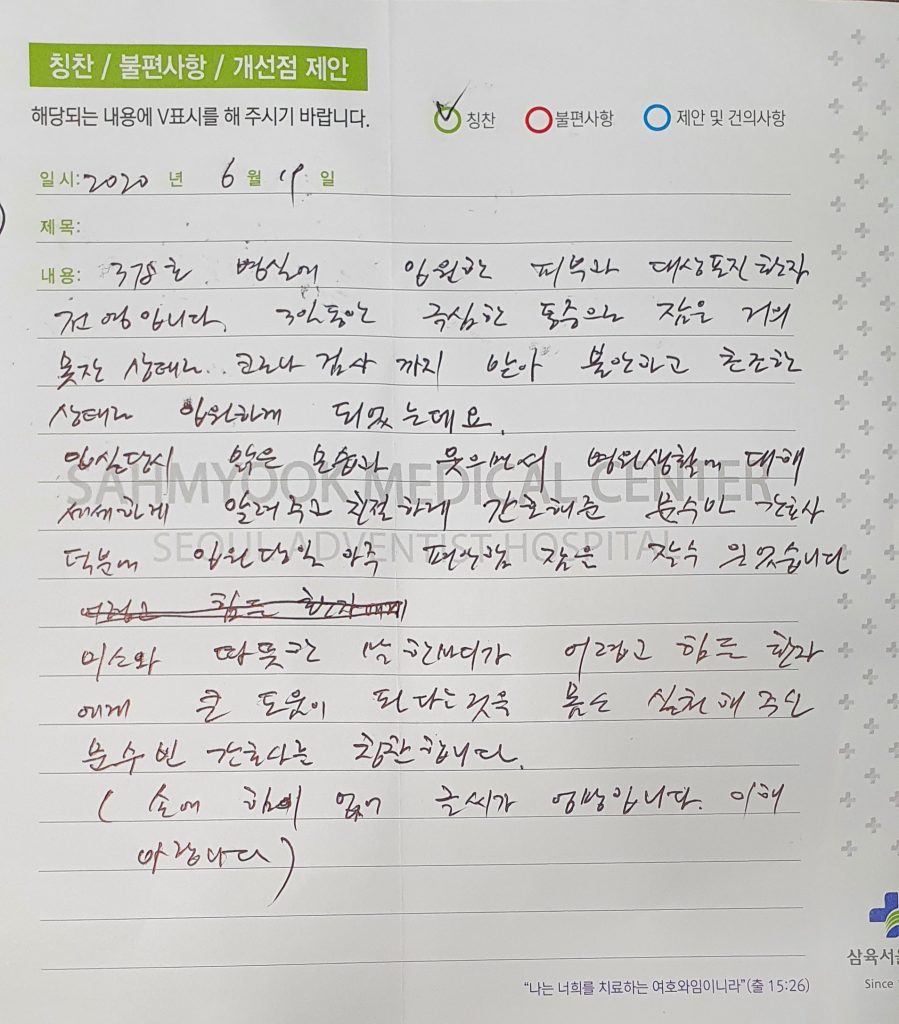 칭찬 / 불편사항 / 개선점 제안
해당되는 내용에 V표시를 해 주시기 바랍니다.
칭찬 불편사항 제안 및 건의사항
일시: 2020 년 6 월 19 일
제목:
내용: 378호 병실에 입원한 피부과 대상포진 환자
입니다. 3일동안 극심한 통증으로 잠을 거의
못잔 상태로.. 코로나 검사 까지 받아 불안하고 초조한
상태로 입원하게 되었는데요.
입실당시 밝은 모습과 웃으면서 병원생활에 대해
세세하게 알려주고 친절하게 간호해준 문수빈 간호사
덕분에 입원당일 아주 편안함 잠을 잘수 있었습니다
SAHMYOOK MEDICAL CENTER
SEOUL ADVENTIST HOSPITAL
어렵고 힘든 환자에게
미소와 따뜻한 말 한마디가 어렵고 힘든 환자
에게 큰 도움이 된다는것을 몸소 실천해 주신
문수빈 간호사를 칭찬합니다.
(손에 힘이 없어 글씨가 엉망입니다. 이해
바랍니다)
삼육서울
Since
“나는 너희를 치료하는 여호와임이니라”(출 15:26)